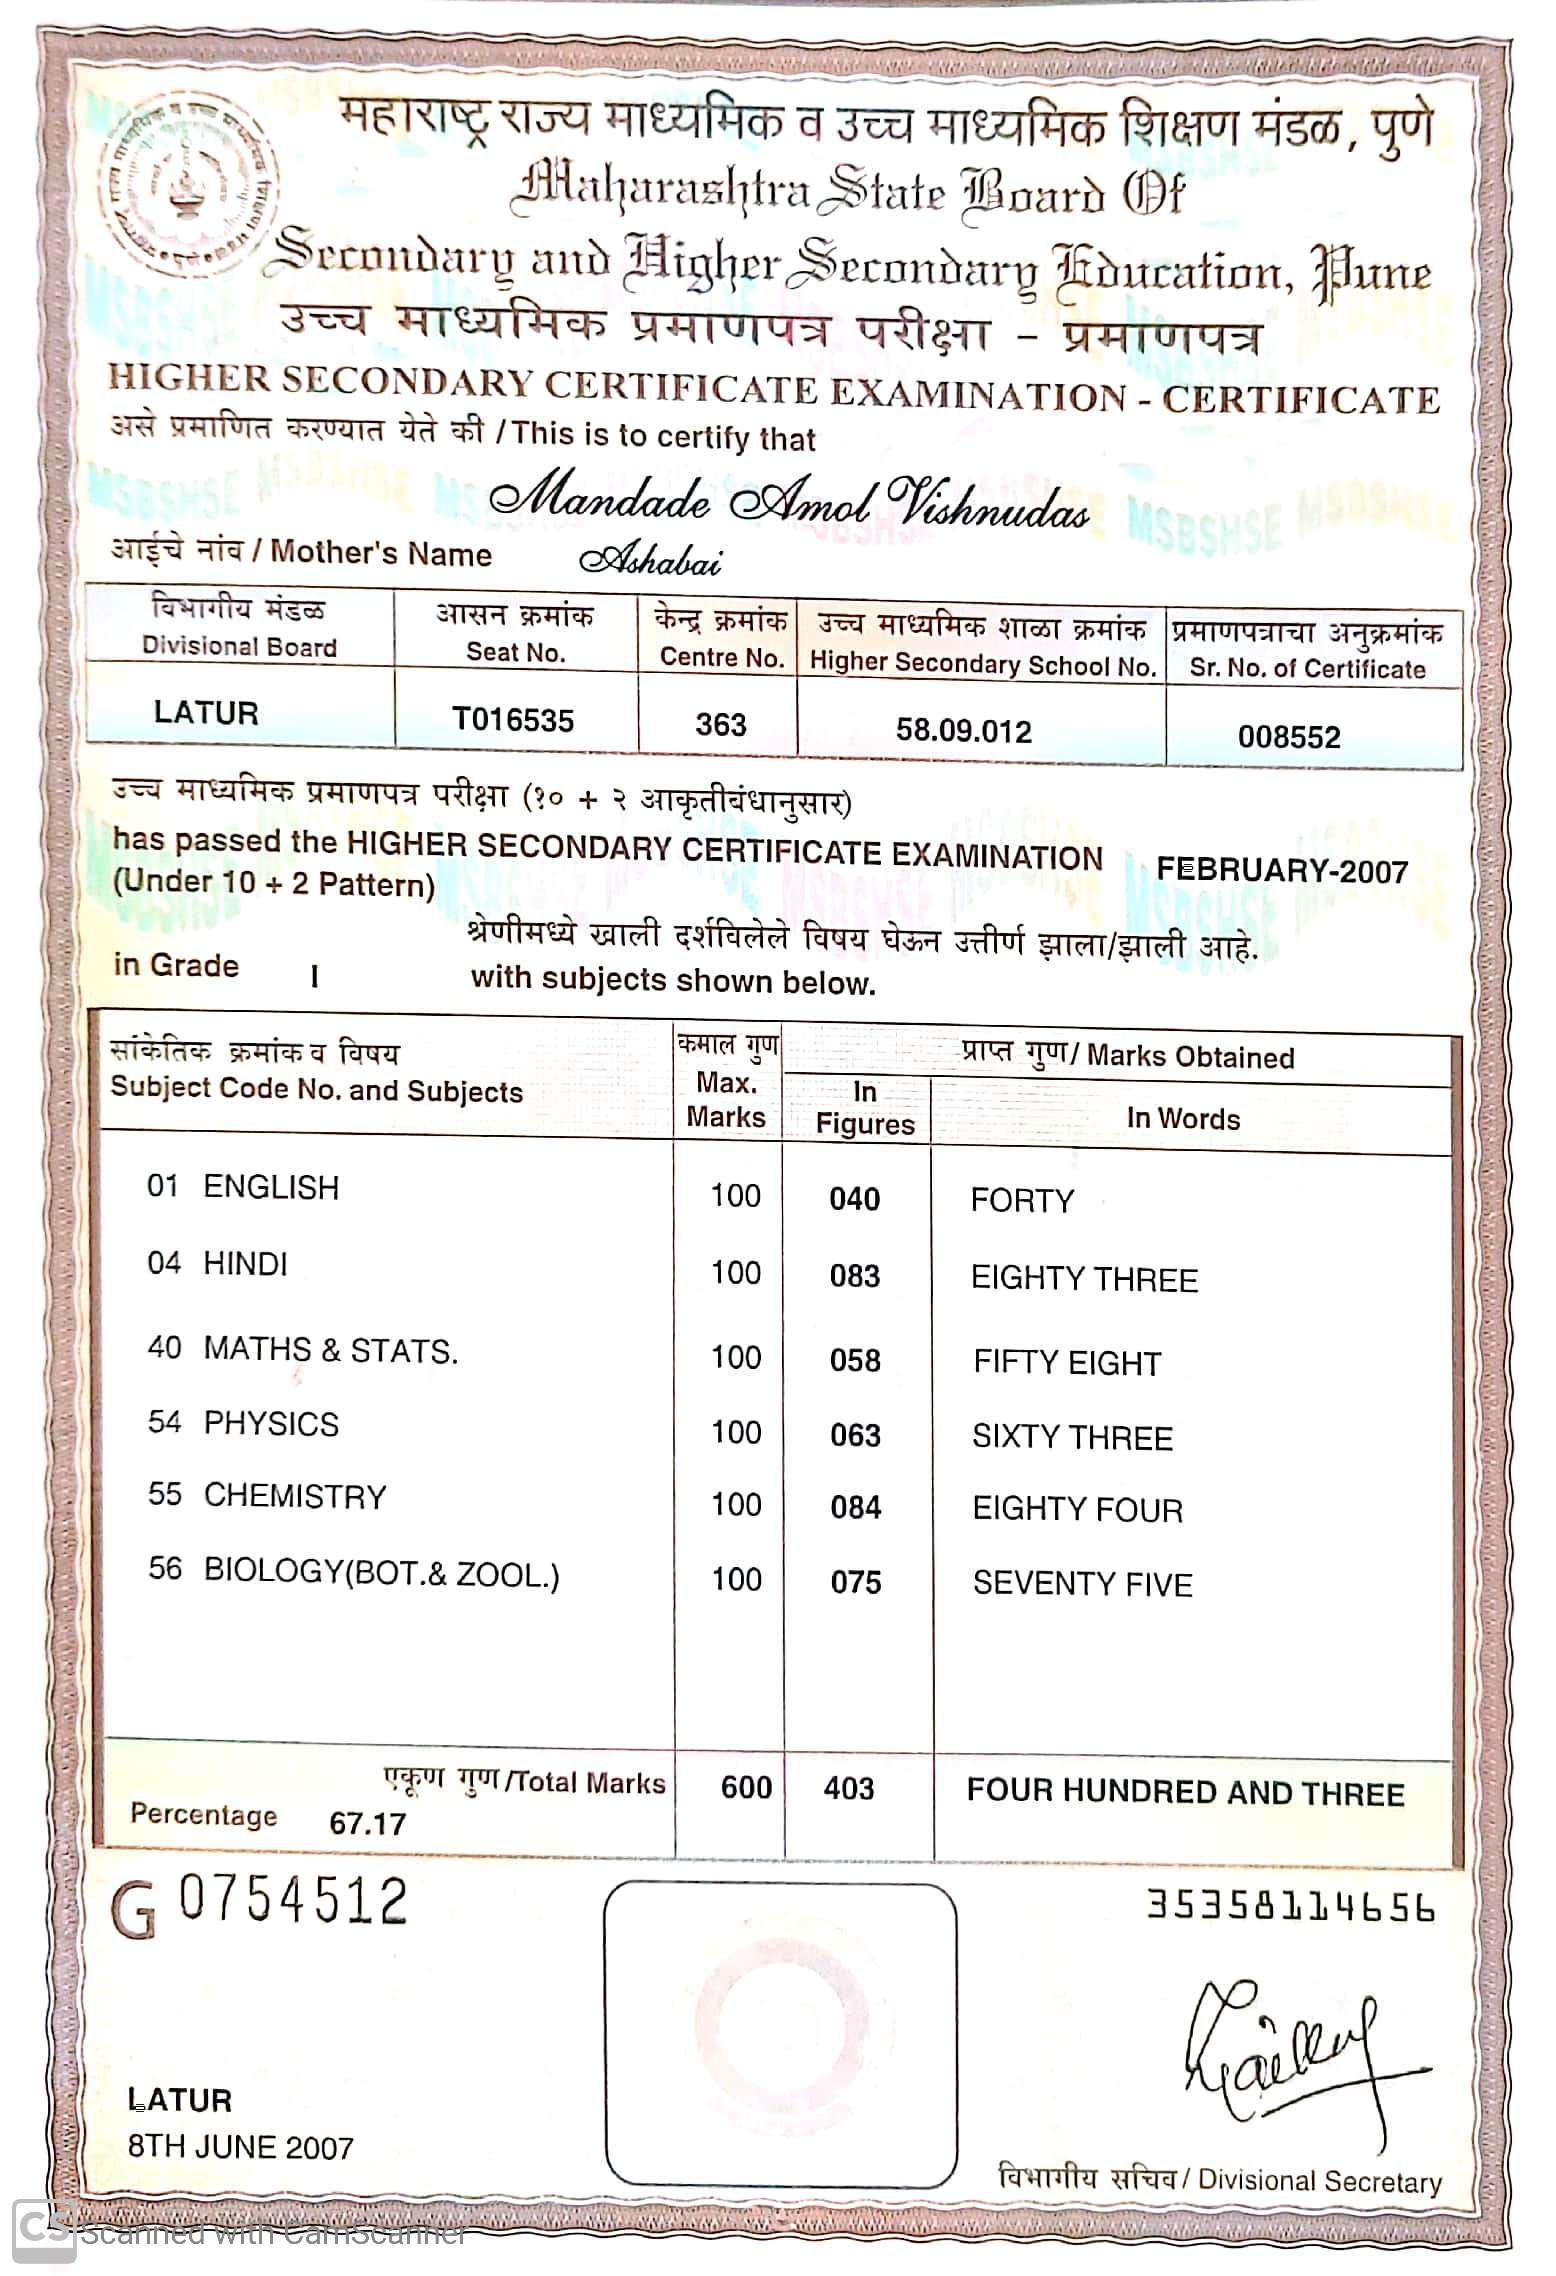 महाराष्ट्र राज्य माध्यमिक व उच्च माध्यमिक शिक्षण मंडळ, पुणे
Maharashtra State Board Of
Secondary and Higher Secondary Education, Pune
उच्च माध्यमिक प्रमाणपत्र परीक्षा - प्रमाणपत्र
HIGHER SECONDARY CERTIFICATE EXAMINATION - CERTIFICATE
असे प्रमाणित करण्यात येते की / This is to certify that
Mandade Amol Vishnudas
आईचे नांव / Mother's Name Ashabai
विभागीय मंडळ आसन क्रमांक केन्द्र क्रमांक उच्च माध्यमिक शाळा क्रमांक प्रमाणपत्राचा अनुक्रमांक
Divisional Board Seat No. Centre No. Higher Secondary School No. Sr. No. of Certificate
LATUR T016535 363 58.09.012 008552
उच्च माध्यमिक प्रमाणपत्र परीक्षा (१० + २ आकृतीबंधानुसार)
has passed the HIGHER SECONDARY CERTIFICATE EXAMINATION FEBRUARY-2007
(Under 10 + 2 Pattern)
श्रेणीमध्ये खाली दर्शविलेले विषय घेऊन उत्तीर्ण झाला/झाली आहे.
in Grade I with subjects shown below.
सांकेतिक क्रमांक व विषय कमाल गुण प्राप्त गुण/ Marks Obtained
Subject Code No. and Subjects Max. Marks In Figures In Words
01 ENGLISH 100 040 FORTY
04 HINDI 100 083 EIGHTY THREE
40 MATHS & STATS. 100 058 FIFTY EIGHT
54 PHYSICS 100 063 SIXTY THREE
55 CHEMISTRY 100 084 EIGHTY FOUR
56 BIOLOGY(BOT.& ZOOL.) 100 075 SEVENTY FIVE
एकूण गुण/Total Marks 600 403 FOUR HUNDRED AND THREE
Percentage 67.17
G 0754512 35358114656
LATUR
8TH JUNE 2007
विभागीय सचिव / Divisional Secretary
CS Scanned with CamScanner